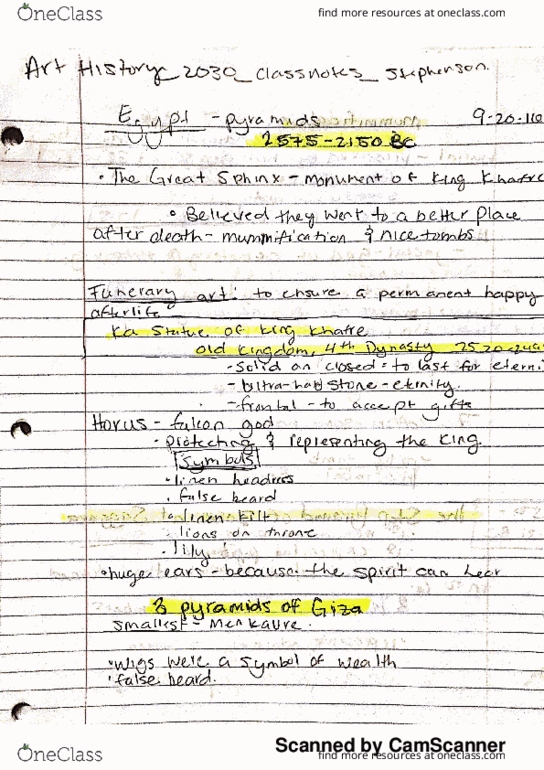 OneClass
find more resources at oneclass.com
Art History_2030_classnotes_Stephenson.
Egypt - pyramids 9-20-
2575-2150 BC
• The Great Sphinx - monument of King Khafre
• Believed they went to a better place
after death - mummification & nice tombs
Funerary art: to ensure a permanent happy
afterlife
Ka Statue of King Khafre
Old Kingdom, 4th Dynasty 2520-
- Solid an closed = to last for eterni
- Ultra-hard stone - eternity.
- frontal - to accept gifts
Horus - falcon god
- protecting & representing the king.
Symbols
• linen headress
• false beard
• linen kilt
• lions on throne
• lily
• huge ears - because the spirit can hear
3 pyramids of Giza
smallest - Menkaure.
• wigs were a symbol of wealth
• false beard.
Scanned by CamScanner
OneClass
find more resources at oneclass.com